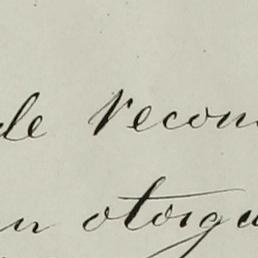 de recon
n otorga